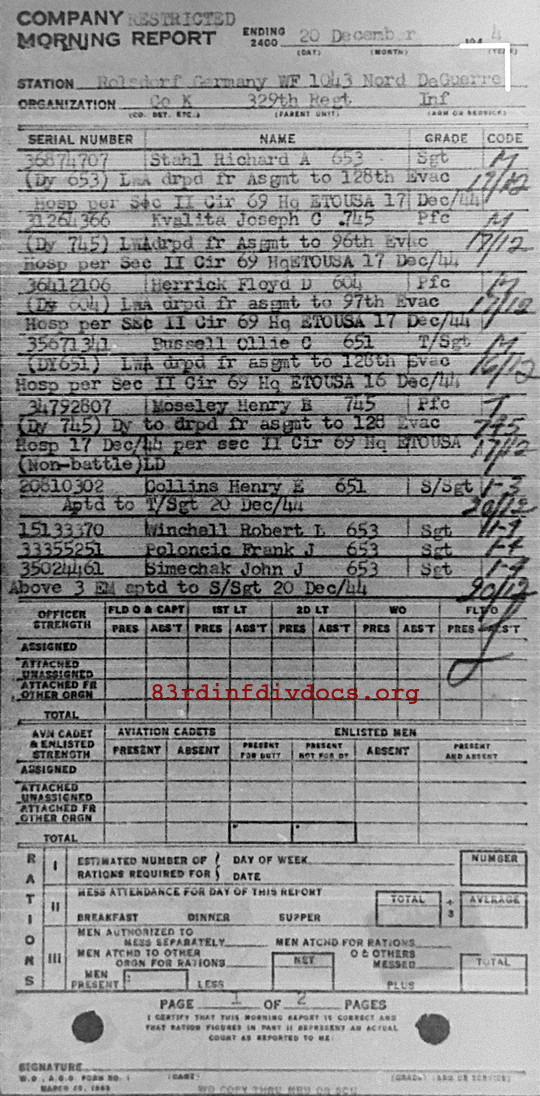 COMPANY RESTRICTED
MORNING REPORT ENDING 2400 20 December 194 4
(DAY) (MONTH) (YEAR)
STATION Rolsdorf Germany WF 1043 Nord DeGuerre
ORGANIZATION Co K 329th Regt Inf
(CO. DET. ETC.) (PARENT UNIT) (ARM OR SERVICE)
SERIAL NUMBER NAME GRADE CODE
36874707 Stahl Richard A 653 Sgt M
(Dy 653) LWA drpd fr Asgmt to 128th Evac 17/12
Hosp per Sec II Cir 69 Hq ETOUSA 17 Dec/44
31264366 Kvalita Joseph C .745 Pfc M
(Dy 745) LWA drpd fr Asgmt to 96th Evac 17/12
Hosp per Sec II Cir 69 HqETOUSA 17 Dec/44
36412106 Herrick Floyd D 604 Pfc M
(Dy 604) LWA drpd fr asgmt to 97th Evac 17/12
Hosp per SEc II Cir 69 Hq ETOUSA 17 Dec/44
35671341 Russell Ollie C 651 T/Sgt M
(DY651) LWA drpd fr asgmt to 128th Evac 16/12
Hosp per Sec II Cir 69 Hq ETOUSA 16 Dec/44
34792807 Moseley Henry E 745 Pfc T
(Dy 745) Dy to drpd fr asgmt to 128 Evac 745
Hosp 17 Dec/44 per sec II Cir 69 Hq ETOUSA 17/12
(Non-battle)LD
20810302 Collins Henry E 651 S/Sgt 1-3
Aptd to T/Sgt 20 Dec/44 20/12
15133370 Winchell Robert L 653 Sgt 1-4
33355251 Poloncic Frank J 653 Sgt 1-4
35024461 Simechak John J 653 Sgt 1-4
Above 3 EM aptd to S/Sgt 20 Dec/44 20/12
OFFICER STRENGTH FLD O & CAPT 1ST LT 2D LT WO FLT O
PRES ABS'T PRES ABS'T PRES ABS'T PRES ABS'T PRES ABS'T
ASSIGNED
ATTACHED UNASSIGNED
ATTACHED FR OTHER ORGN
83rdinfdivdocs.org
TOTAL
AVN CADET & ENLISTED STRENGTH AVIATION CADETS ENLISTED MEN
PRESENT ABSENT PRESENT FOR DUTY PRESENT NOT FOR DY ABSENT PRESENT AND ABSENT
ASSIGNED
ATTACHED UNASSIGNED
ATTACHED FR OTHER ORGN
TOTAL
RATIONS
I ESTIMATED NUMBER OF DAY OF WEEK NUMBER
RATIONS REQUIRED FOR DATE
II MESS ATTENDANCE FOR DAY OF THIS REPORT TOTAL ÷ 3 AVERAGE
BREAKFAST DINNER SUPPER
III MEN AUTHORIZED TO MESS SEPARATELY MEN ATCHD FOR RATIONS
MEN ATCHD TO OTHER ORGN FOR RATIONS NET O & OTHERS MESSED TOTAL
MEN PRESENT LESS PLUS
PAGE 1 OF 2 PAGES
I CERTIFY THAT THIS MORNING REPORT IS CORRECT AND
THAT RATION FIGURES IN PART II REPRESENT AN ACTUAL
COUNT AS REPORTED TO ME:
SIGNATURE
W.D., A.G.O. FORM NO. 1 (NAME) (GRADE) (ARM OR SERVICE)
MARCH